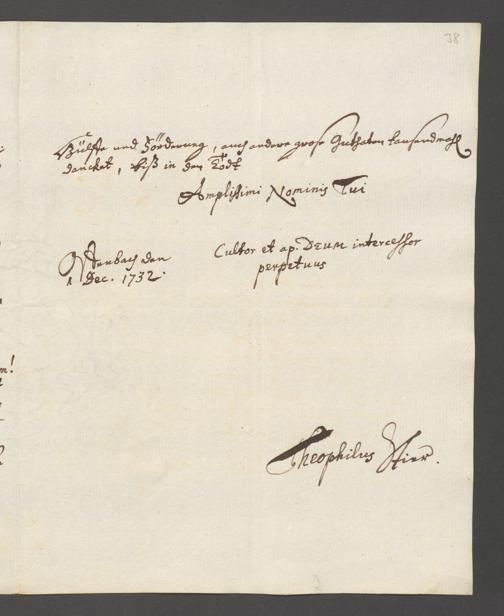 38
Hülffe und Förderung, auch andere grose Guthaten tausendmahl
dancket, biß in den Todt
Amplissimi Nominis Tui
Cultor et ap. DEUM intercessor
perpetuus
den
1 Dec. 1732.
m!
Theophilus Stier.